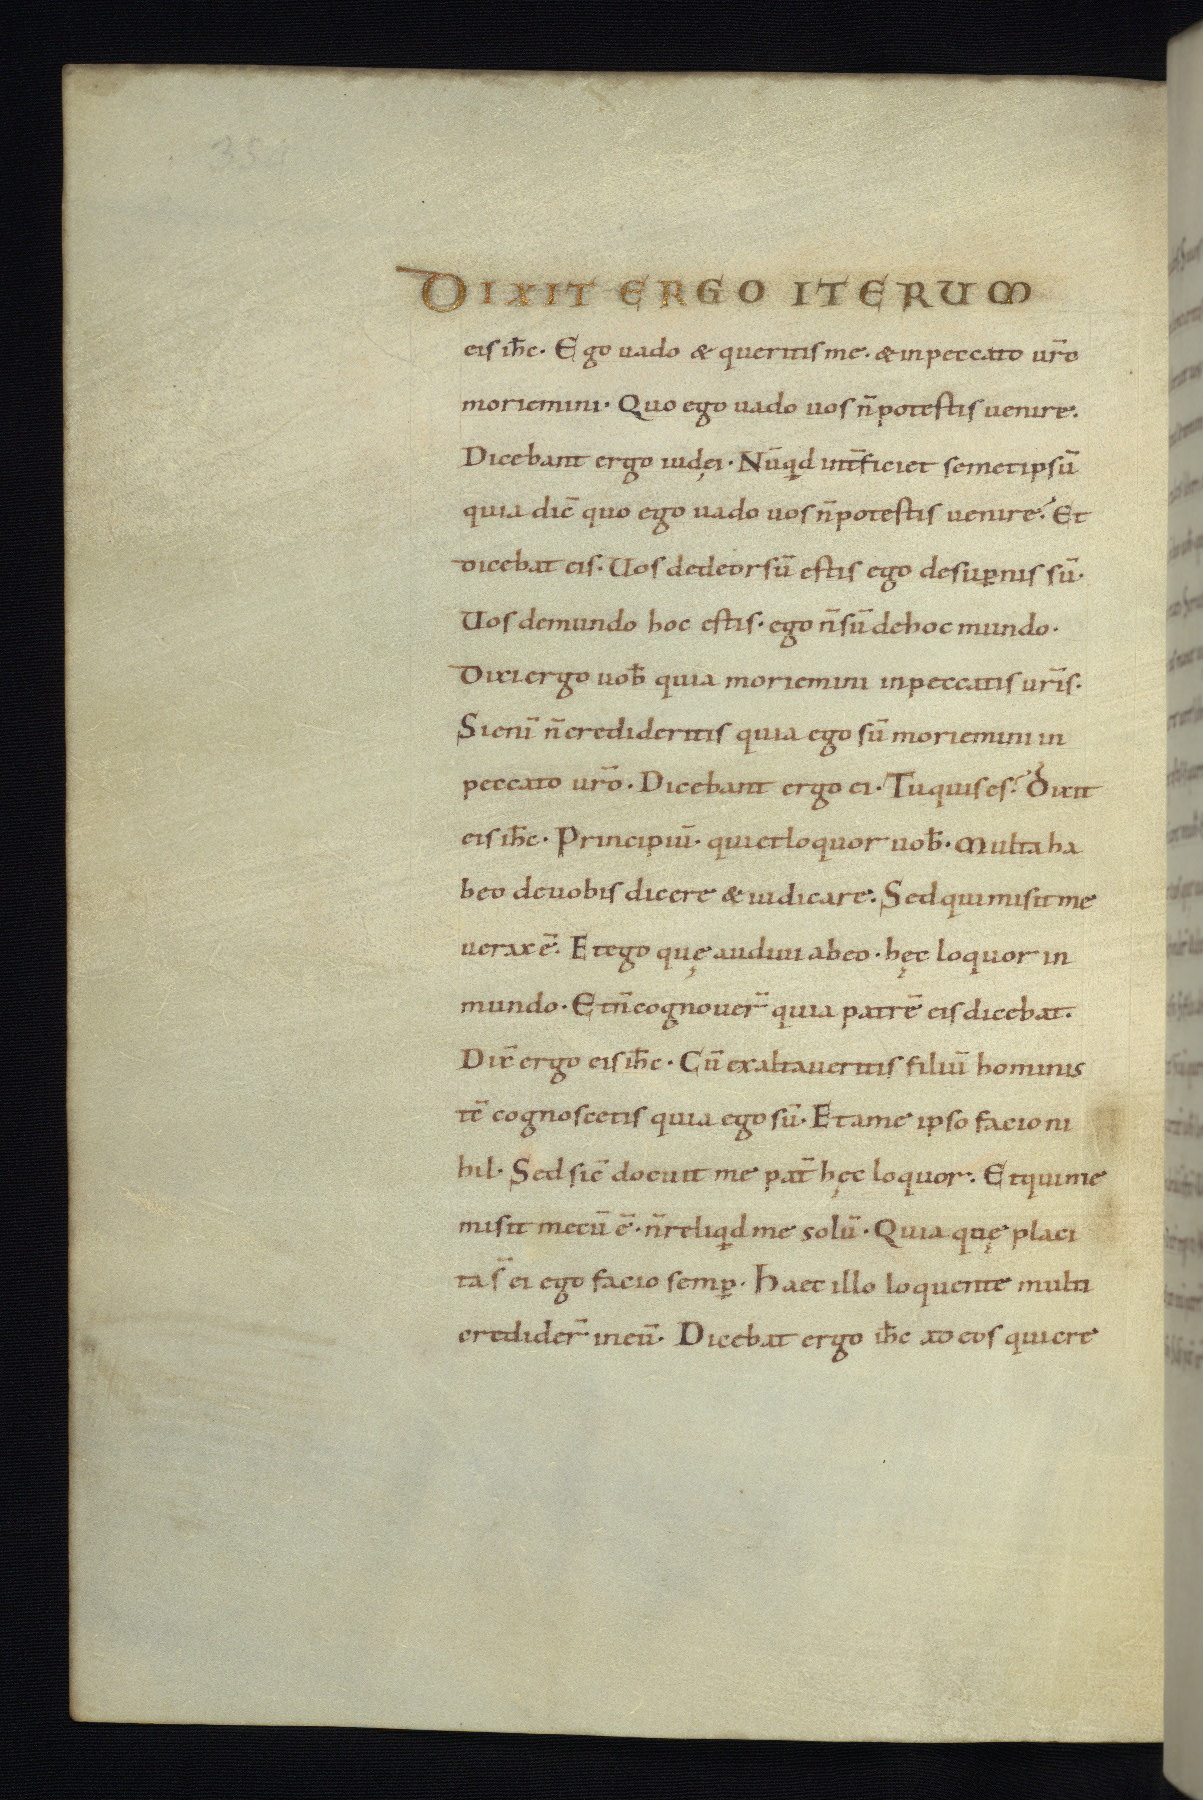 354
DIXIT ERGO ITERUM
eis ih̄c· Ego uado & queritis me· & inpeccato ur̄o
moriemini· Quo ego uado uos n̄ potestis uenire·
Dicebant ergo iudęi· Nūqd int̄ficiet semetipsū
quia dic̄ quo ego uado uos n̄ potestis uenire? Et
dicebat eis· Uos dedeorsū estis ego desuꝑnis sū·
Uos demundo hoc estis· ego n̄ sū dehoc mundo·
Dixi ergo uob̄ quia moriemini inpeccatis ur̄is·
Si eni̅ n̄ credideritis quia ego sū moriemini in
peccato ur̄o· Dicebant ergo ei· Tu quis es? Dixit
eis ih̄c· Principiū· qui et loquor uob̄· Multa ha
beo deuobis dicere & iudicare· Sed qui misit me
uerax ē· Et ego quę audiui abeo· hęc loquor in
mundo· Et n̄ cognouer̄ quia patrē eis dicebat·
Dix̄ ergo eis ih̄c· Cū exaltaueritis filiū hominis
tc̄ cognoscetis quia ego sū· Et ame ipso facio ni
hil· Sed sic̄ docuit me pat̄ hęc loquor· Et qui me
misit mecū ē· n̄ reliqd me solū· Quia quę placi
ta s̄ ei ego facio semꝑ· Haec illo loquente multi
credider̄ ineū· Dicebat ergo ih̄c ad eos qui cre